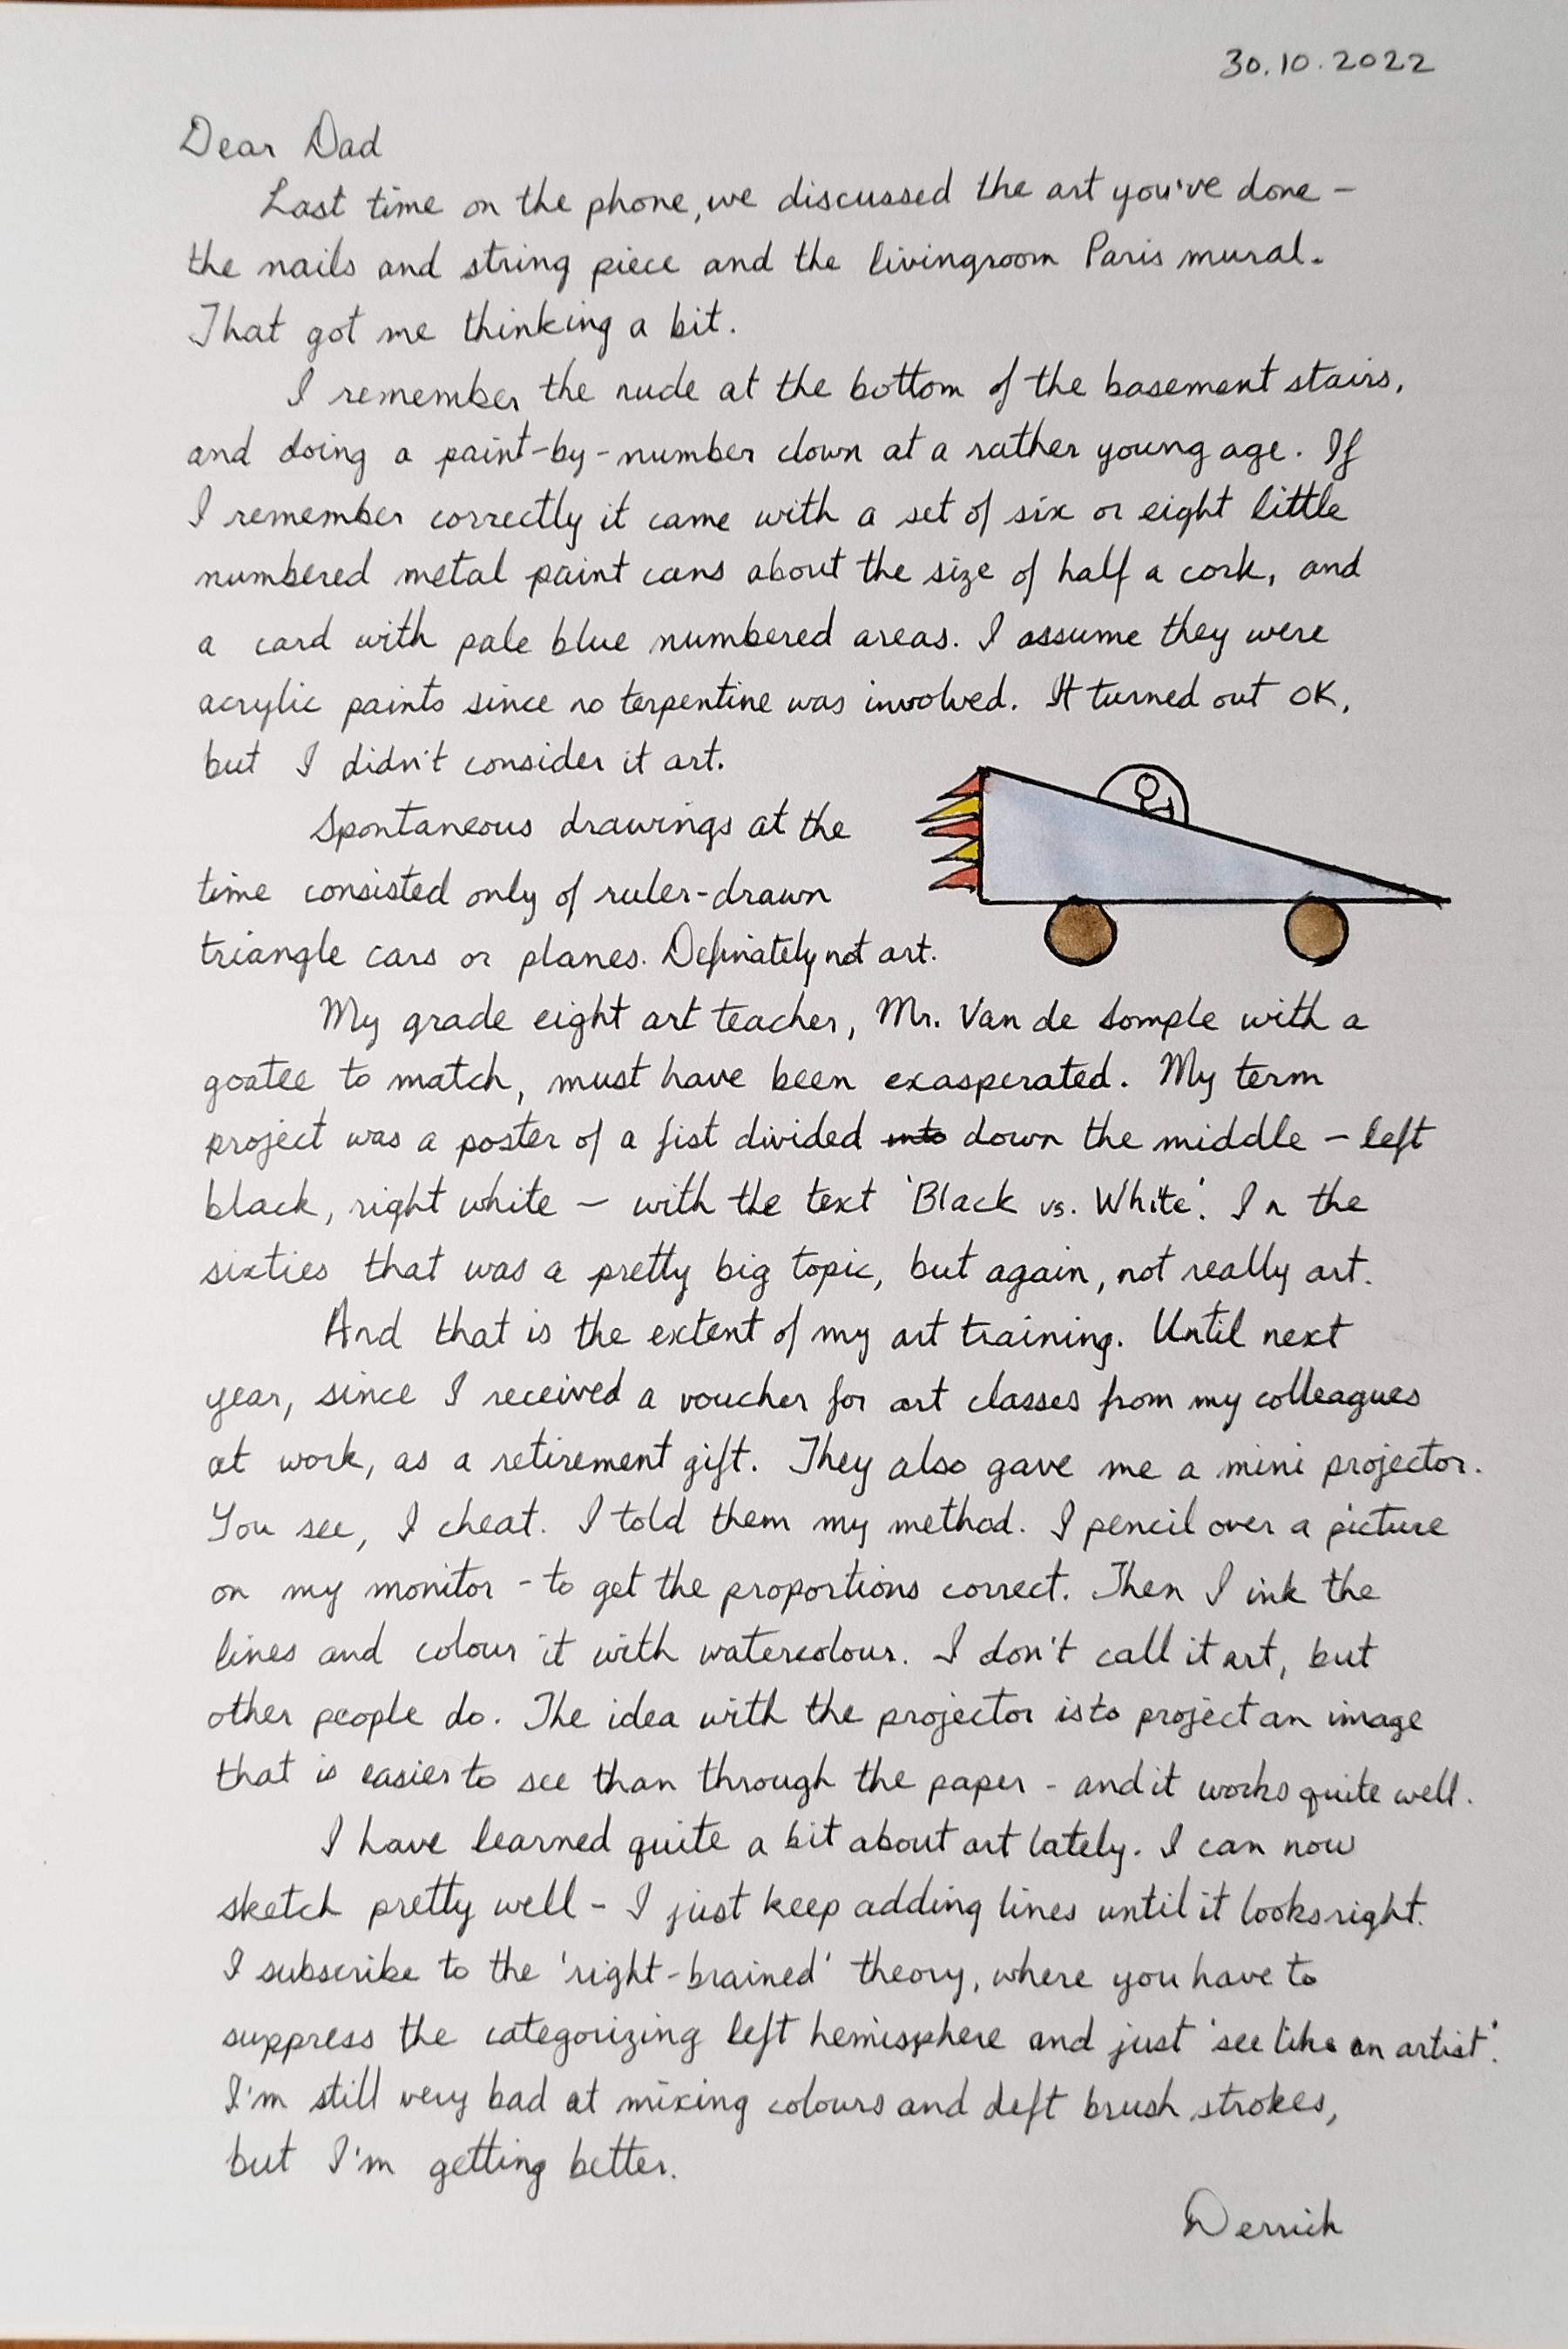 30.10.2022
Dear Dad
Last time on the phone, we discussed the art you've done –
the nails and string piece and the livingroom Paris mural.
That got me thinking a bit.
I remember the nude at the bottom of the basement stairs,
and doing a paint-by-number clown at a rather young age. If
I remember correctly it came with a set of six or eight little
numbered metal paint cans about the size of half a cork, and
a card with pale blue numbered areas. I assume they were
acrylic paints since no terpentine was involved. It turned out OK,
but I didn't consider it art.
Spontaneous drawings at the
time consisted only of ruler-drawn
triangle cars or planes. Definately not art.
My grade eight art teacher, Mr. Van de Somple with a
goatee to match, must have been exasperated. My term
project was a poster of a fist divided into down the middle – left
black, right white – with the text 'Black vs. White'. In the
sixties that was a pretty big topic, but again, not really art.
And that is the extent of my art training. Until next
year, since I received a voucher for art classes from my colleagues
at work, as a retirement gift. They also gave me a mini projector.
You see, I cheat. I told them my method. I pencil over a picture
on my monitor - to get the proportions correct. Then I ink the
lines and colour it with watercolour. I don't call it art, but
other people do. The idea with the projector is to project an image
that is easier to see than through the paper - and it works quite well.
I have learned quite a bit about art lately. I can now
sketch pretty well – I just keep adding lines until it looks right.
I subscribe to the 'right-brained' theory, where you have to
suppress the categorizing left hemisphere and just 'see like an artist'.
I'm still very bad at mixing colours and deft brush strokes,
but I'm getting better.
Derrick